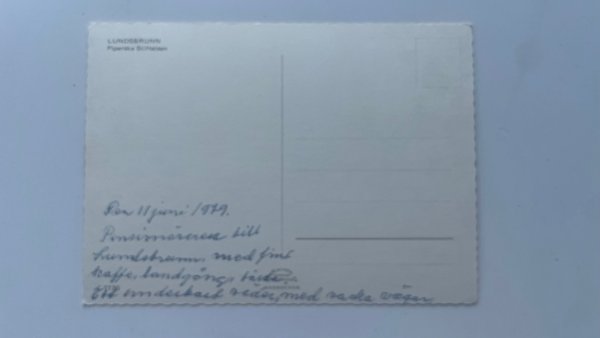 LUNDSBRUNN
Piperska Stiftelsen
Den 11 juni 1979.
Pensionärsresa till
Lundsbrunn, med fint
kaffe, landgång, tårta
Ett underbart väder, med vackra vägar